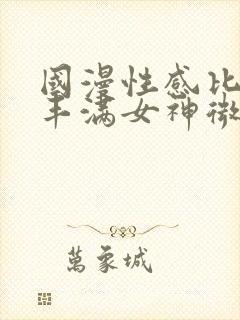 國漫性感比
丰满女神微
萬象城